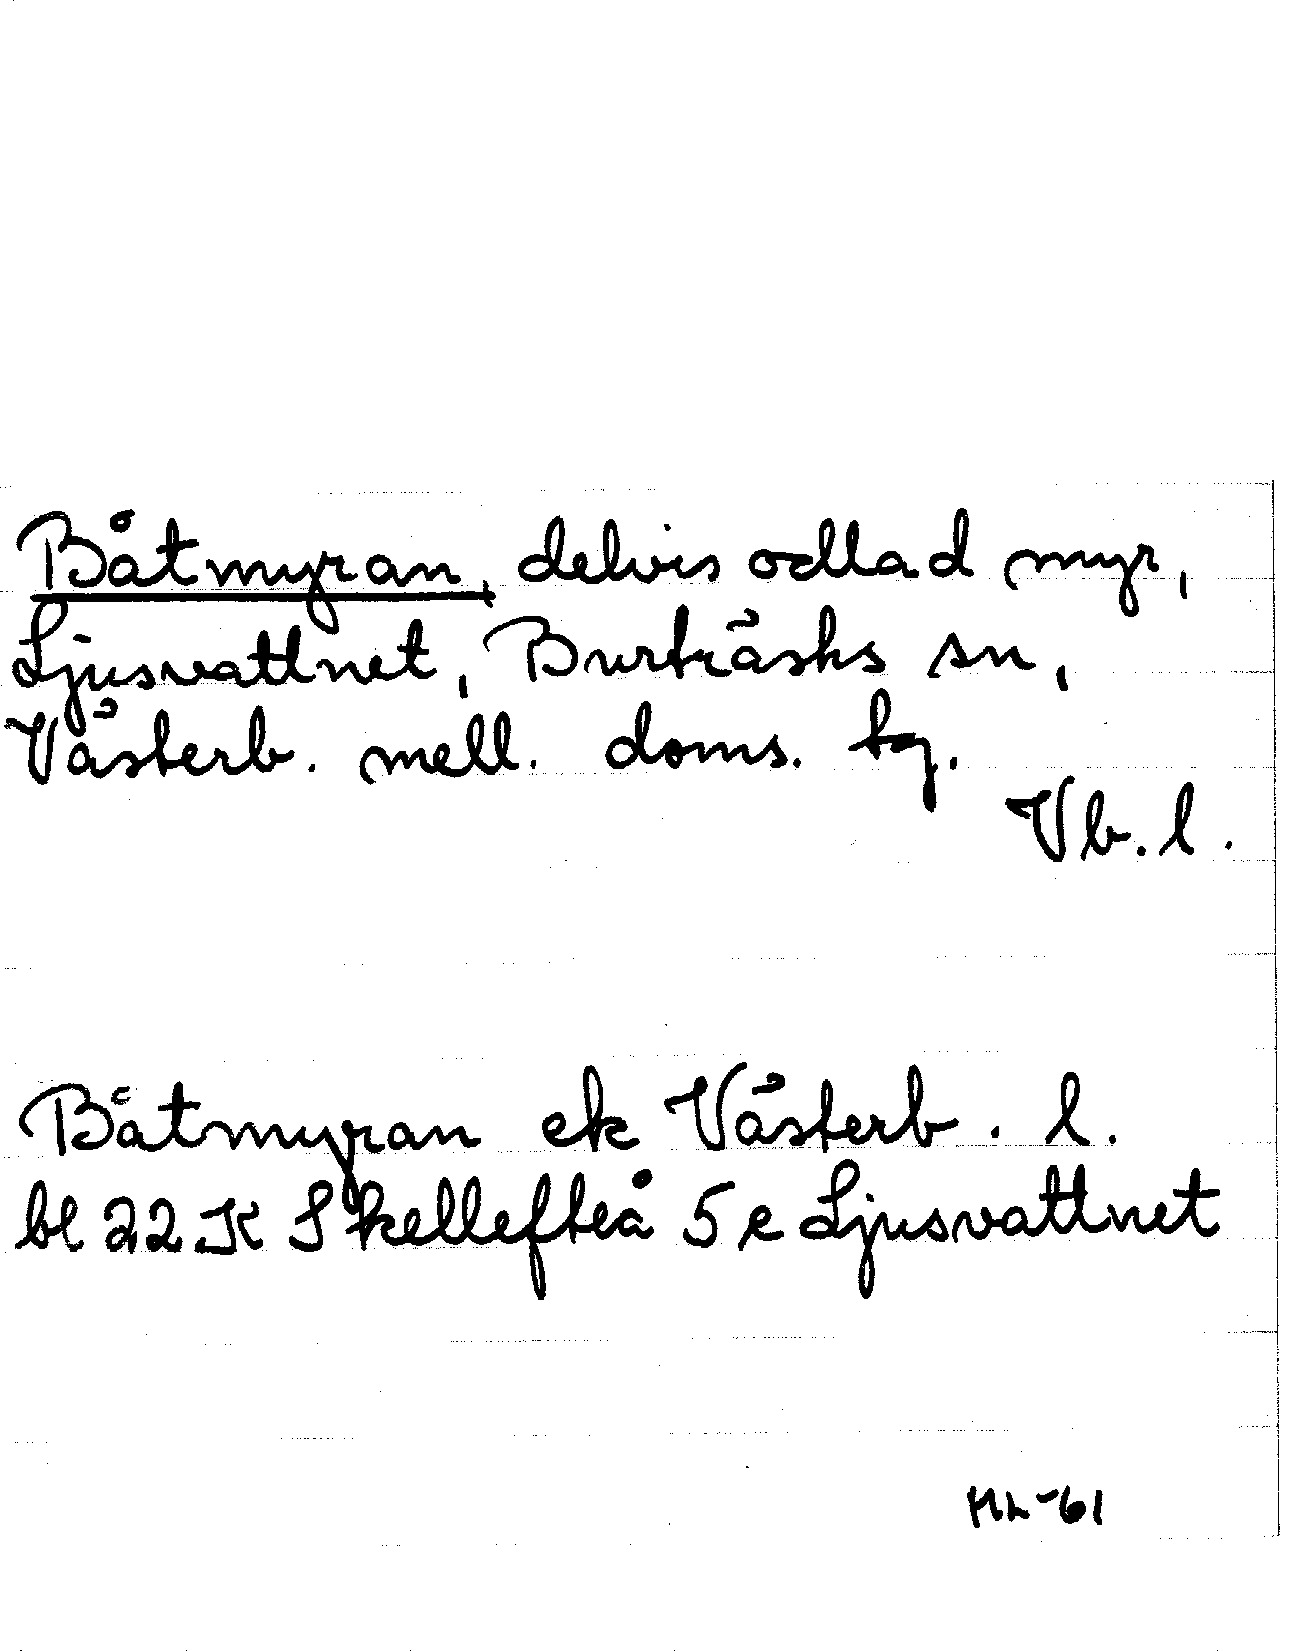 Båtmyran, delvis odlad myr,
Ljusvattnet, Burträsks sn,
Västerb. mell. doms. tg.
Vb. l.
Båtmyran ek Västerb. l.
bl 22 K Skellefteå 5 e Ljusvattnet
ML-61